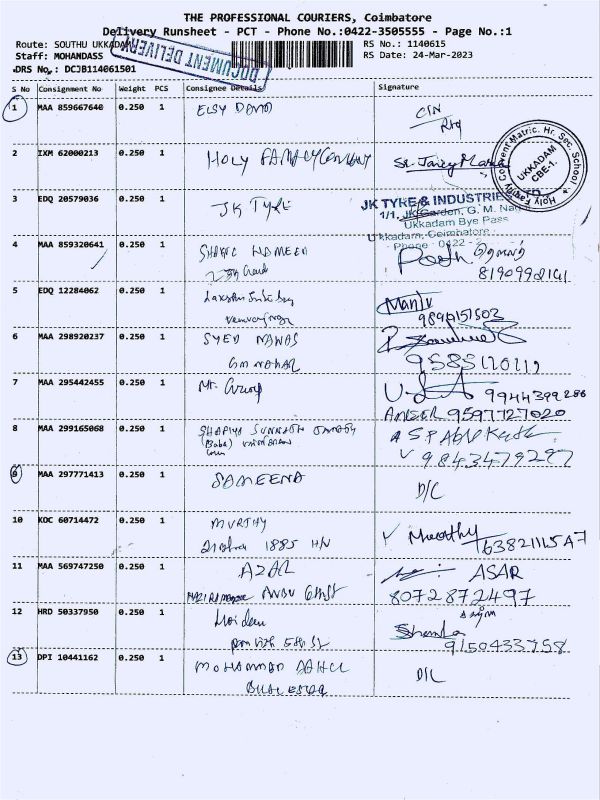 THE PROFESSIONAL COURIERS, Coimbatore
Delivery Runsheet - PCT - Phone No.:0422-3505555 - Page No.:1
Route: SOUTHU UKKADAM
RS No.: 1140615
Staff: MOHANDASS
RS Date: 24-Mar-2023
DRS No.: DCJB114061501
DOCUMENT DELIVERY
S No Consignment No Weight PCS Consignee Details Signature
1 MAA 859667640 0.250 1
2 IXM 62000213 0.250 1 HOLY FAMILY CONVENT Sr. Jancy Maria
Holy Family Convent Matric. Hr. Sec. School
UKKADAM
CBE-1.
3 EDQ 20579036 0.250 1 JK TYRE
JK TYRE & INDUSTRIES LTD
1/1, JK Garden, G. M. Nagar
Ukkadam Bye Pass
Ukkadam, Coimbatore
Phone: 0422 - 2
4 MAA 859320641 0.250 1 HAMEED
8190998141
5 EDQ 12284062 0.250 1 Manju
9894151503
6 MAA 298920237 0.250 1 SYED NAWAS
GM NAGAR
7 MAA 295442455 0.250 1 Mr.
9944399286
ANSER 9597727020
8 MAA 299165068 0.250 1 SUNNATH JAMATH
9843479297
9 MAA 297771413 0.250 1 SAMEENA D/C
10 KOC 60714472 0.250 1 MURTHY Moorthy
1885 HN
11 MAA 569747250 0.250 1 AZAR ASAR
8072872497
12 HRD 50337950 0.250 1
9150433758
13 DPI 10441162 0.250 1 MOHAMMAD D/C